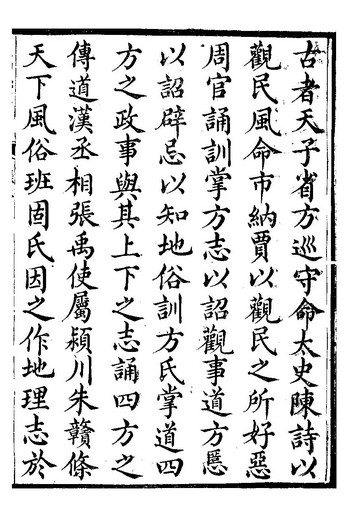 古者天子省方巡守命太史陳詩以
觀民風命市納賈以觀民之所好惡
周官誦訓掌方志以詔觀事道方慝
以詔辟忌以知地俗訓方氏掌道四
方之政事與其上下之志誦四方之
傳道漢丞相張禹使屬潁川朱贛條
天下風俗班固氏因之作地理志於